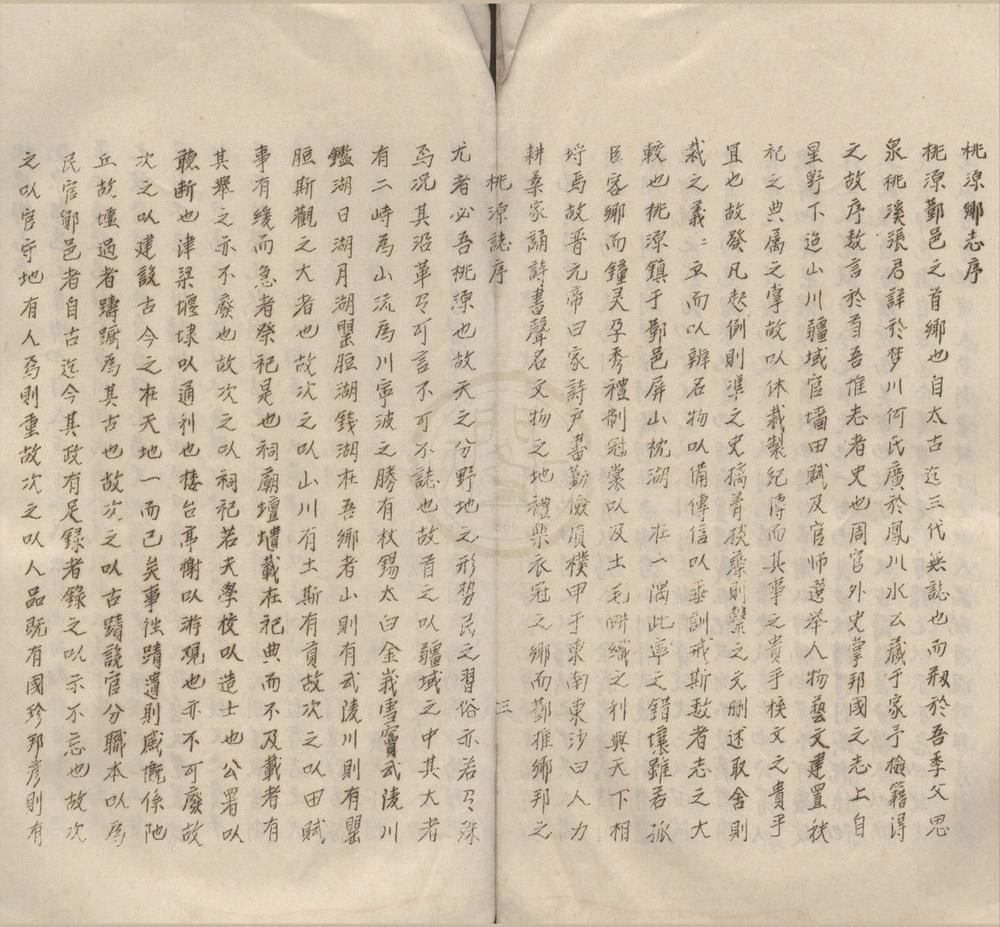 桃源鄉志序
桃源鄞邑之首鄉也自太古迄三代無誌也而剏於吾季父思
泉桃溪張君詳於梦川何氏廣於鳳川水公藏于家予檢籍得
之故序敖言於首吾惟志者史也周官外史掌邦國之志上自
星野下迨山川疆域官墻田賦及官师選举人物藝文建置秩
祀之典属之掌故以休裁製纪傳而其事之貴乎核文之貴乎
宜也故發凡起例則凖之史摛菁掞藻則櫽之文刪述取舍則
裁之義三立而以辨名物以備傳信以垂訓戒斯敖者志之大
較也桃源鎮于鄞邑屏山枕湖在一隅此寧之錯壤雖若孤
臣客鄉而鐘灵孕秀禮制冠裳以及土毛畊織之利與天下相
埒焉故晋元帝曰家詩戶書勤儉貭樸甲于東南東沙曰人力
耕桑家誦詩書聲名文物之地禮樂衣冠之鄉而鄞推鄉邦之
桃源誌序
三
尤者必吾桃源也故天之分野地之形势民之習俗亦若另殊
焉况其沿革另可言不可不誌也故首之以疆域之中其大者
有二峙爲山流爲川寧波之勝有杖錫太白金峩雪竇武陵川
鑑湖日湖月湖罌脰湖錢湖在吾鄉者山則有武陵川則有罌
脰斯觀之大者也故次之以山川有土斯有貢故次之以田賦
事有缓而急者祭祀是也祠廟壇壝載在祀典而不及載者有
其舉之亦不廢也故次之以祠祀若夫學校以造士也公署以
聽断也津梁堰埭以通利也楼台亭榭以游观也亦不可廢故
次之以建設古今之在天地一而已矣事徃蹟遺則感慨係阤
丘故壇過者躊躇爲其古也故次之以古蹟設官分職本以爲
民官鄞邑者自古迄今其政有足錄者錄之以示不忘也故次
之以官守地有人焉則重故次之以人品既有國珍邦彦則有